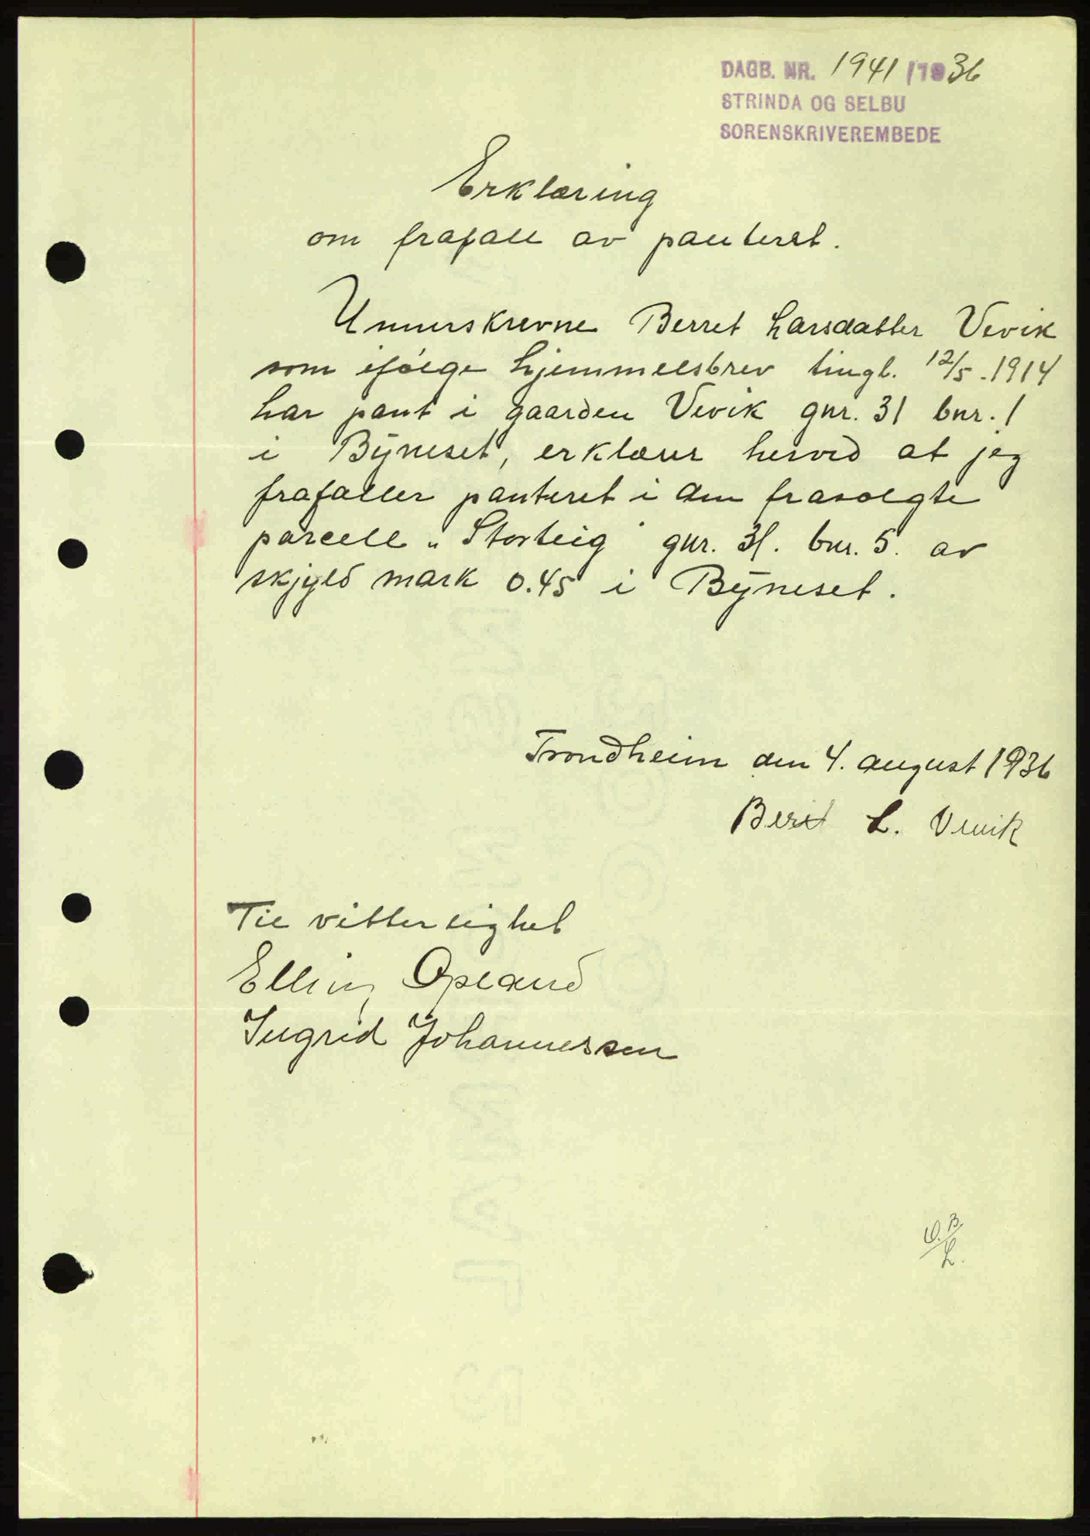 DAGB. NR. 1941/1936
STRINDA OG SELBU
SORENSKRIVEREMBEDE
Erklæring
om frafall av panteret.
Unnerskrevne Berret Larsdatter Vevik
som ifølge hjemmelsbrev tingl. 12/5-1914
har pant i gaarden Vevik gnr. 31 bnr. 1
i Byneset, erklærer herved at jeg
frafaller panteret i den frasolgte
parcell "Storteig" gnr. 31. bnr. 5. av
skjyld mark 0.45 i Byneset.
Trondheim den 4. august 1936
Berit L. Vevik
Til vitterlighet
Elling Opland
Ingrid Johannessen